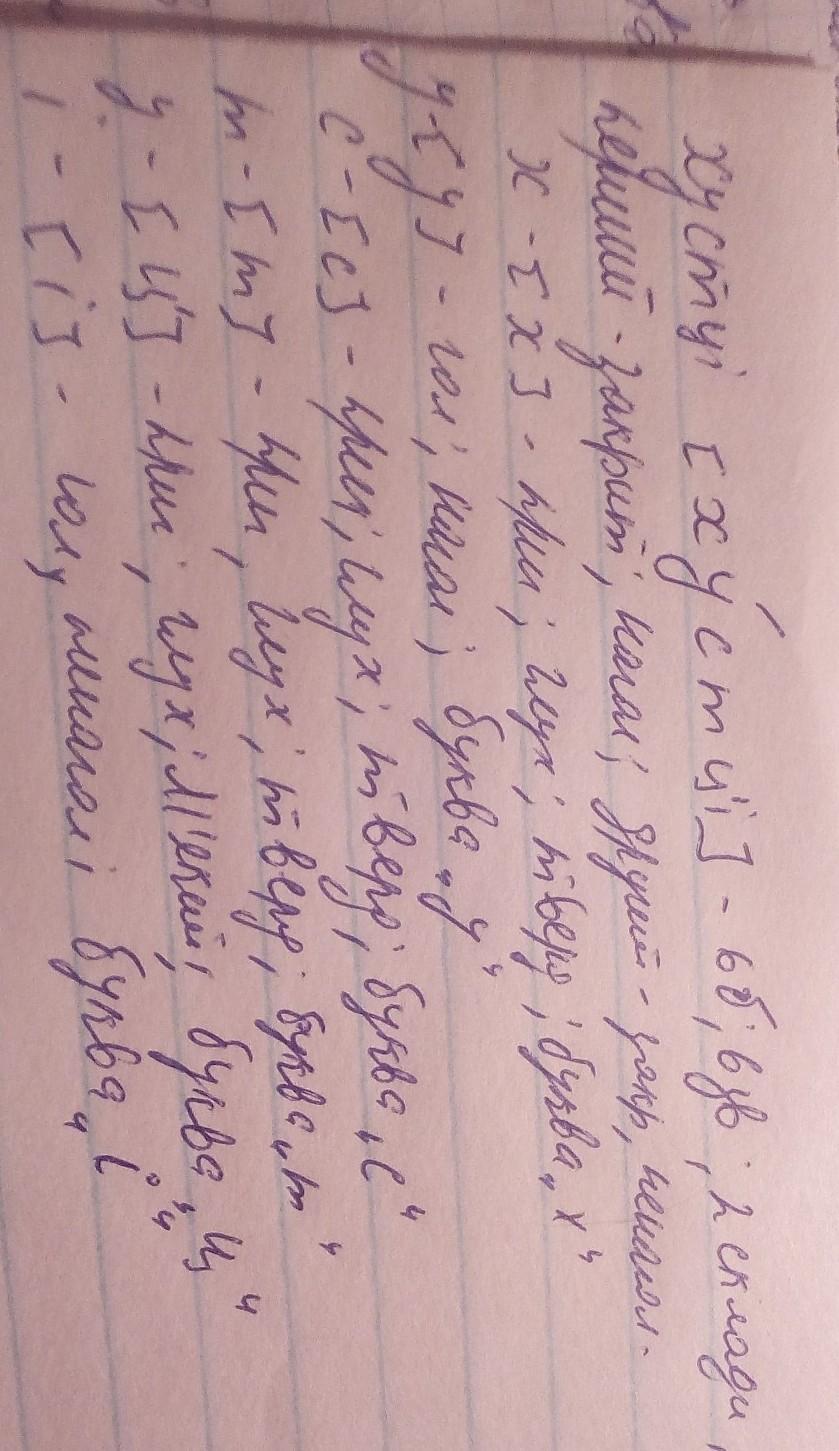 хустці [ху́стц'і] - 6б, 6зв, 2 склади,
перший - закрит, нагол, другий - закр, ненагол.
х - [х] - при, глух, тверд, буква „х"
у - [у] - гол, нагол, буква „у"
с - [с] - приг, глух, тверд, буква „с"
т - [т] - при, глух, тверд, буква „т"
ц - [ц'] - при, глух, м'який, буква „ц"
і - [і] - гол, ненагол, буква „і"